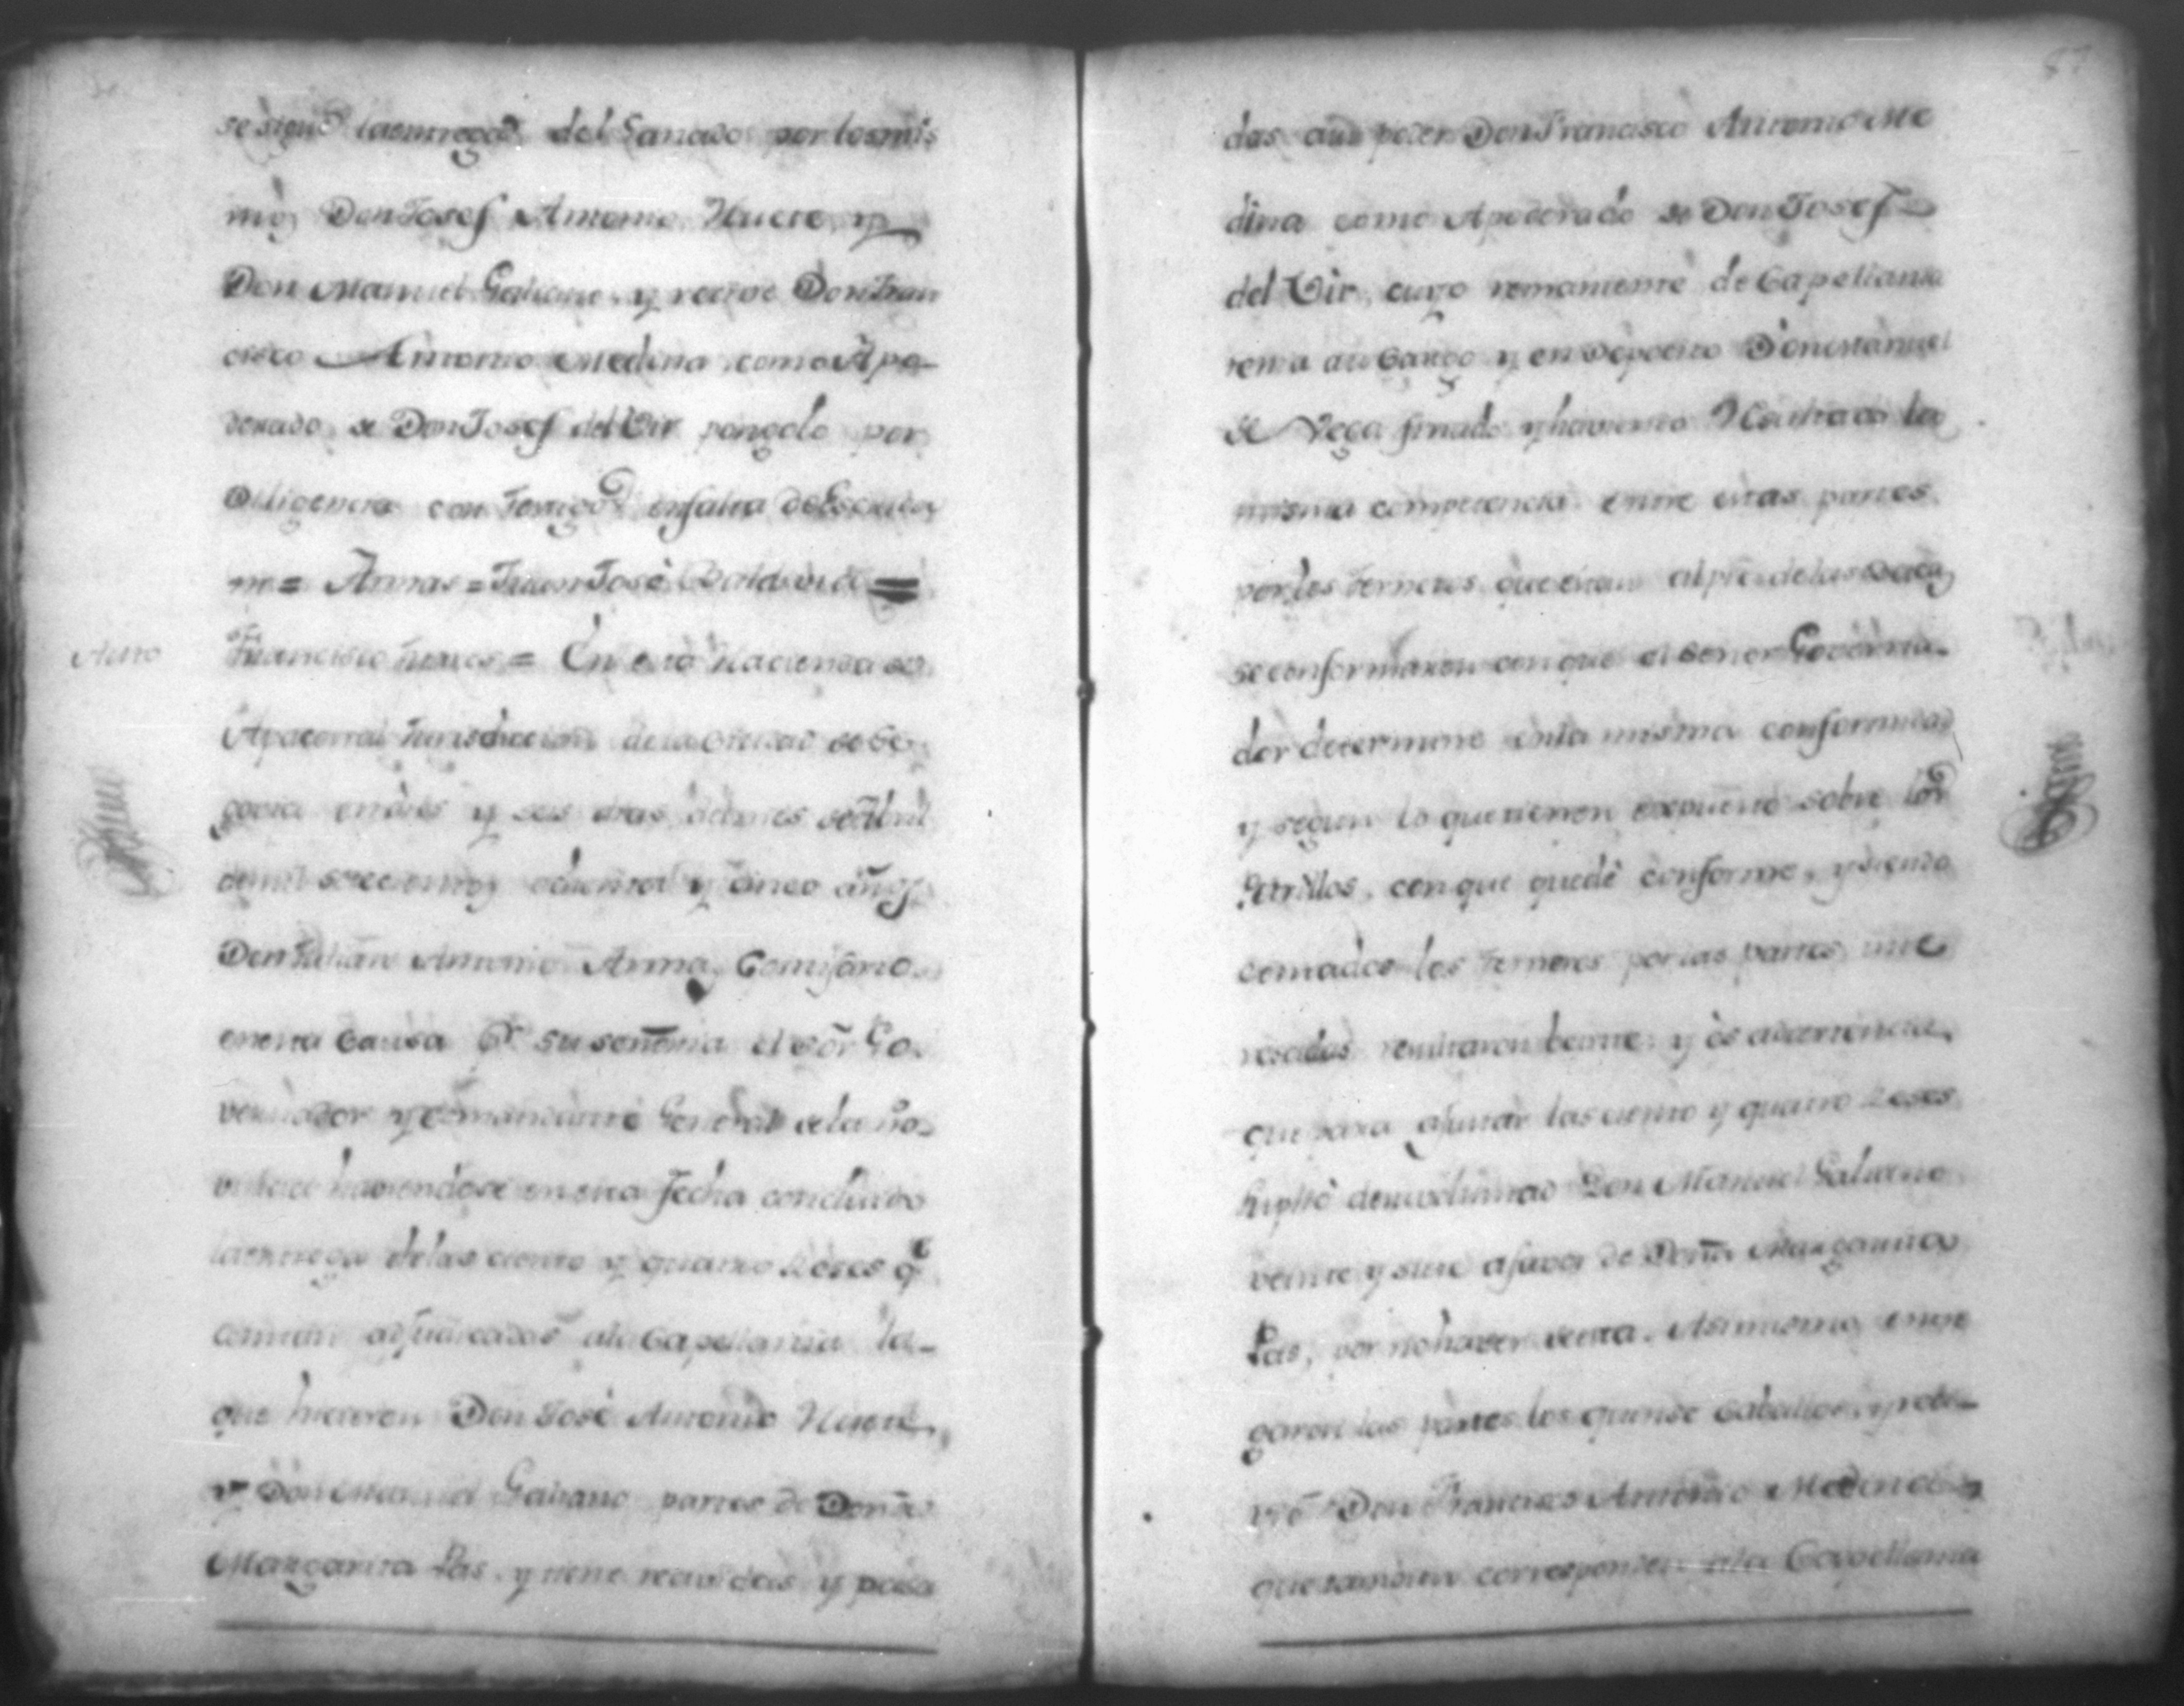 se sigue la entrega del Ganado por los mis
mos Don Josef Antonio Huete, y
Don Manuel Galiano, y recive Don Fran
cisco Antonio Medina como Apo-
derado de Don Josef del Vir pongolo por
Diligencia con testigos en falta de Escriva
no = Armas = Juan José =
Auto
Francisco = En esta Hacienda de
Apacorral Jurisdiccion de la Ciudad de Se
govia en dies y seis dias del mes de Abril
de mil setecientos ochenta y cinco años
Don Julian Antonio Armas Comisario
en esta Causa Pr. su señoria el sōr Go
vernador y Comandante General de la Pro-
vincia haviendose en esta fecha concluido
la entrega de las ciento y quatro Reses qe
constan adjudicadas a la Capellania la
que hicieron Don José Antonio Huete,
y Don Manuel Galiano partes de Doña
Margarita Las y tiene recividas y pasa
87
das a su poder Don Francisco Antonio Me
dina como Apoderado de Don Josef
del Vir, cuyo remaniente de Capellania
tenia a su Cargo y en Deposito Don Manuel
de Vega finado y haviendo Resultado la
misma competencia entre estas partes
por los terneros que estan al pie de las Bacas
se conformaron con que el señor Governa-
dor determine en la misma conformidad
y segun lo que tienen expuesto sobre los
Potrillos, con que quedé conforme, y siendo
contados los terneros por las partes inte
resadas resultaron beinte y os advertencia
que para ajustar las ciento y quatro Reses
suplió Don Manuel Galiano
veinte y siete a favor de Doña Margarita
Las, por no haver Asi mismo entre
garon las partes los quinse Caballos, y reci-
vió Don Francisco Antonio Medina
que tambien corresponden a la Capellania